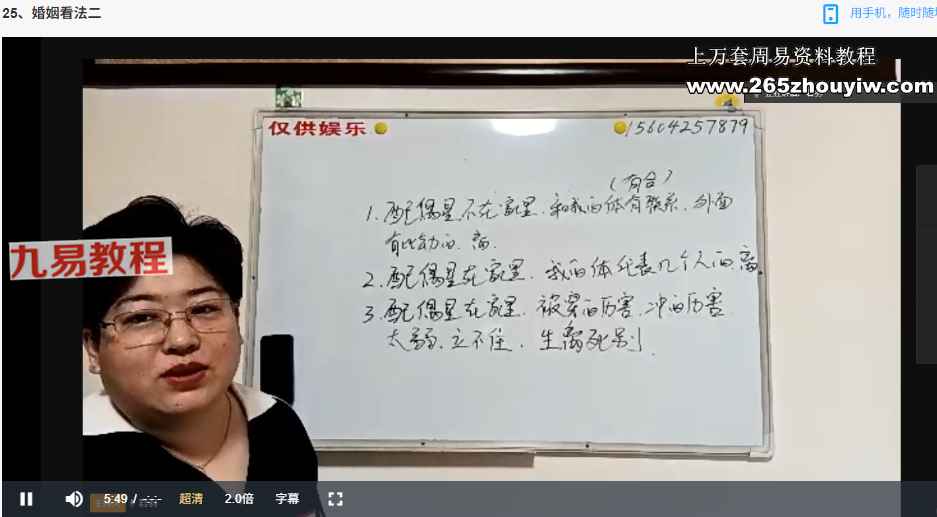 25、婚姻看法二
用手机，随时随
上万套周易资料教程
www.265zhouyiw.com
仅供娱乐
15604257879
（有合）
1.配偶星不在家里.和我的体有联系.外面
有比劫的.离.
2.配偶星在家里.我的体代表几个人的.离.
3.配偶星在家里.被穿的厉害.冲的厉害.
太弱.立不住.生离死别.
九易教程
5:49 / --:--
超清
2.0倍
字幕